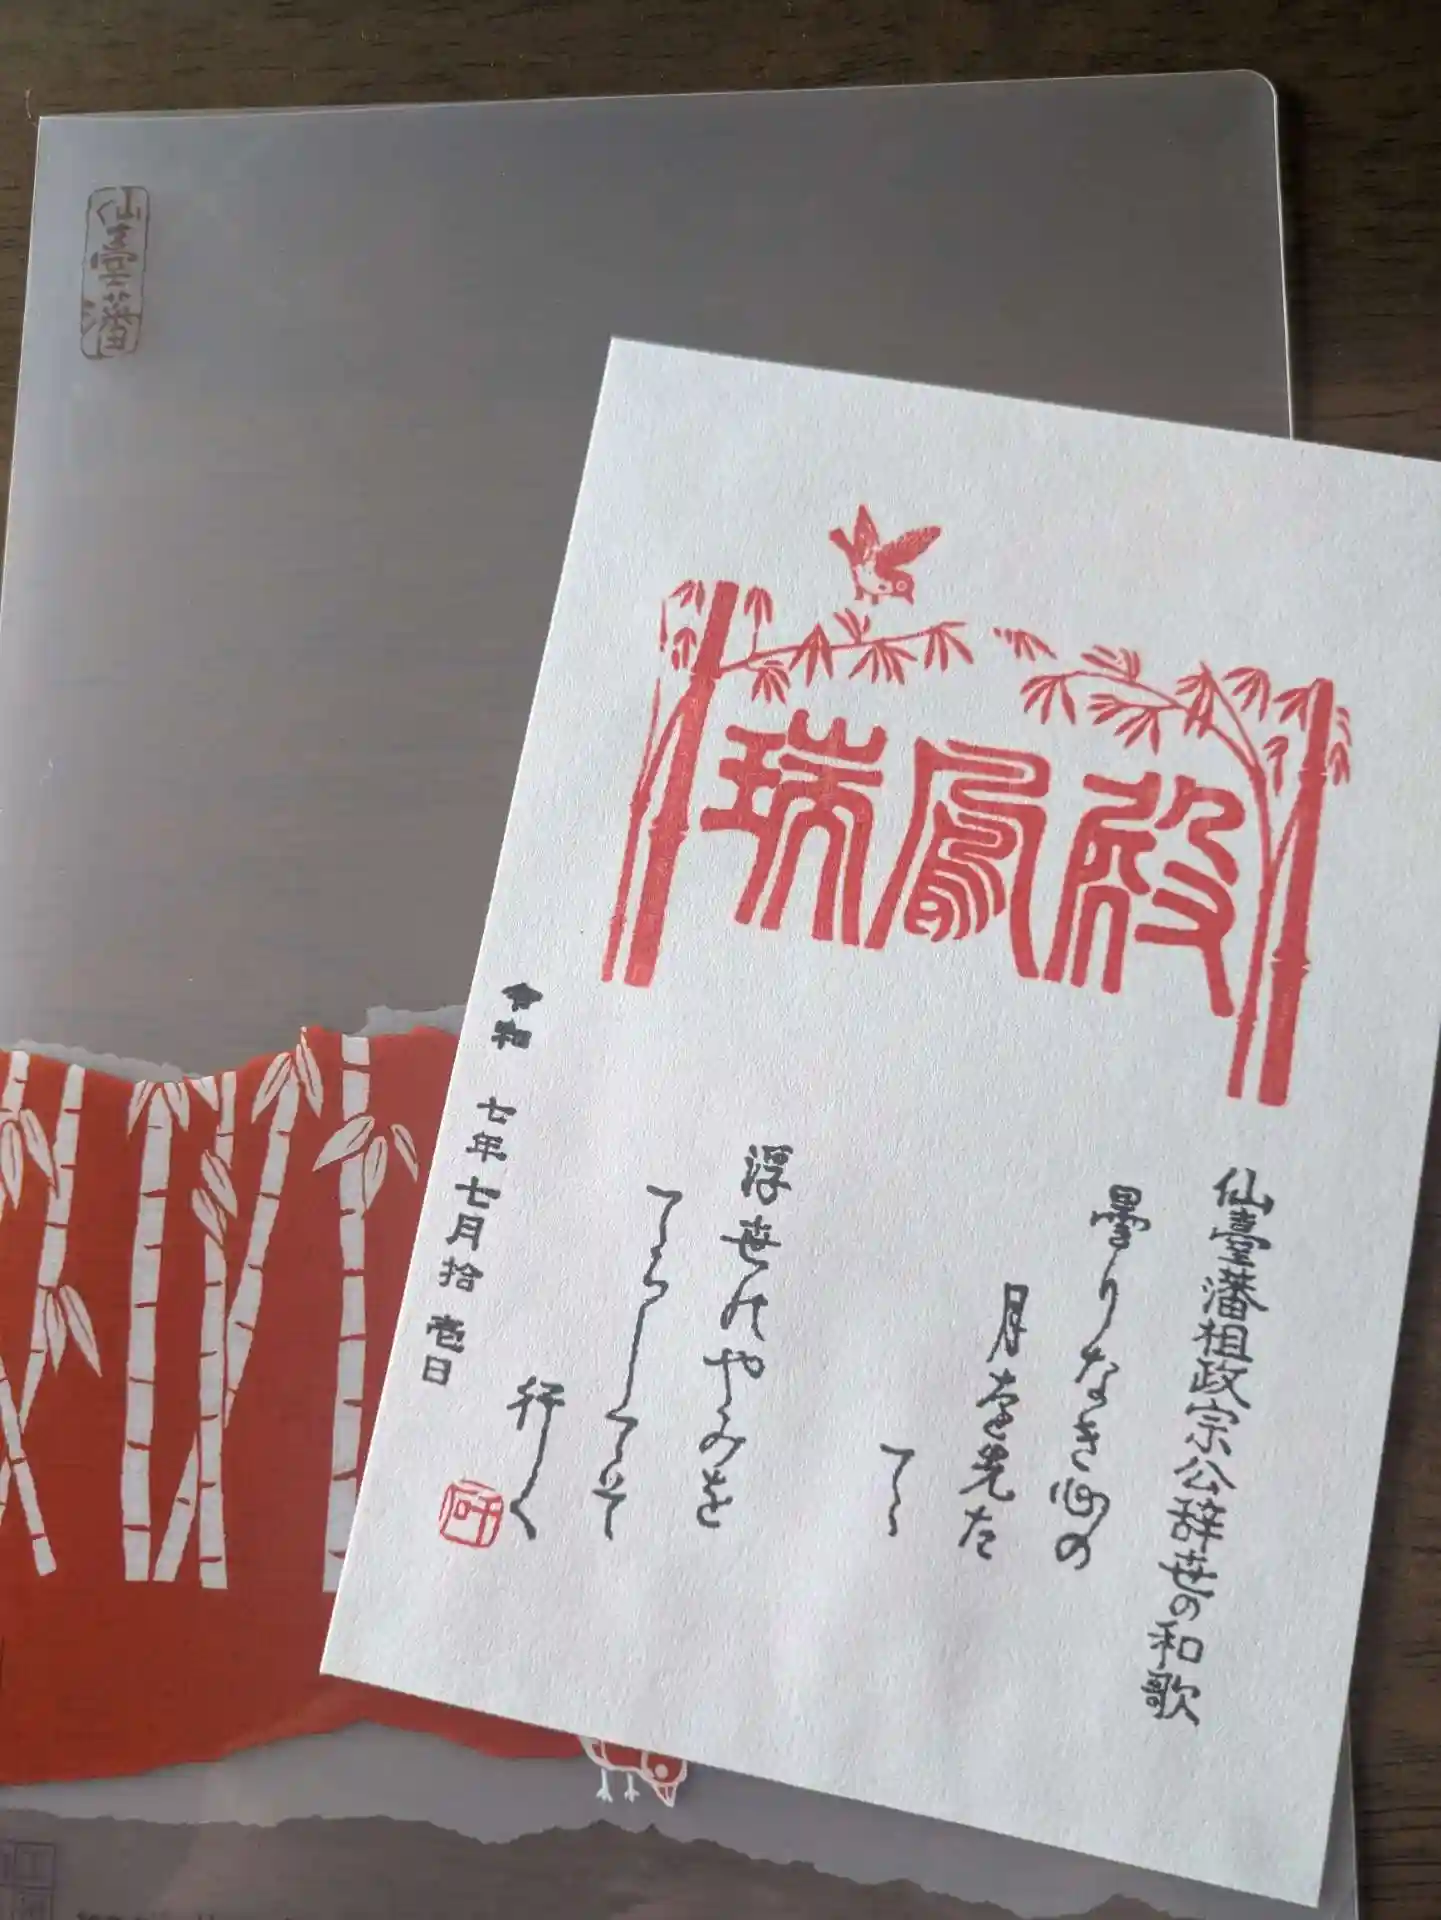 仙臺藩
瑞鳳殿
仙臺藩祖政宗公辞世の和歌
曇りなき心の
月を先た
てゝ
浮世のやみを
てらしてそ
行く
令和 七年 七月 拾壱日